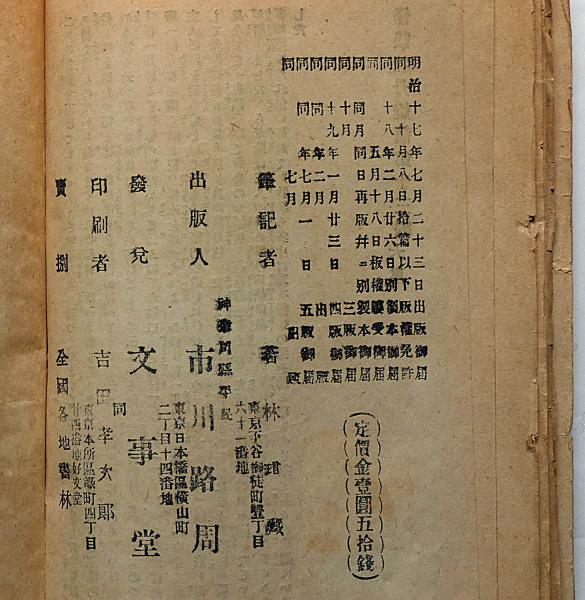 明治十七年七月二十三日出版御屆
同 十月八日拾篇以下版權免許
同 十八年二月廿六日別製本御屆
同 五月十八日板權讓受御屆
同 同月同日再版幷ニ別製本御屆
同 十月 三版御屆
同 十九年一月廿三日 四版御屆
同 同年二月 出版
同 同年七月一日 五版御屆
同 七月 出版
定價金壹圓五拾錢
筆記者
若林玵藏
神奈川縣平民
東京下谷御徒町壹丁目
六十一番地
出版人 市川路周
東京日本橋區橫山町
二丁目十四番地
發兌 文事堂
同
印刷者 吉田孝次郎
東京本所區綠町四丁目
廿四番地好文堂
賣捌 全國各地書林